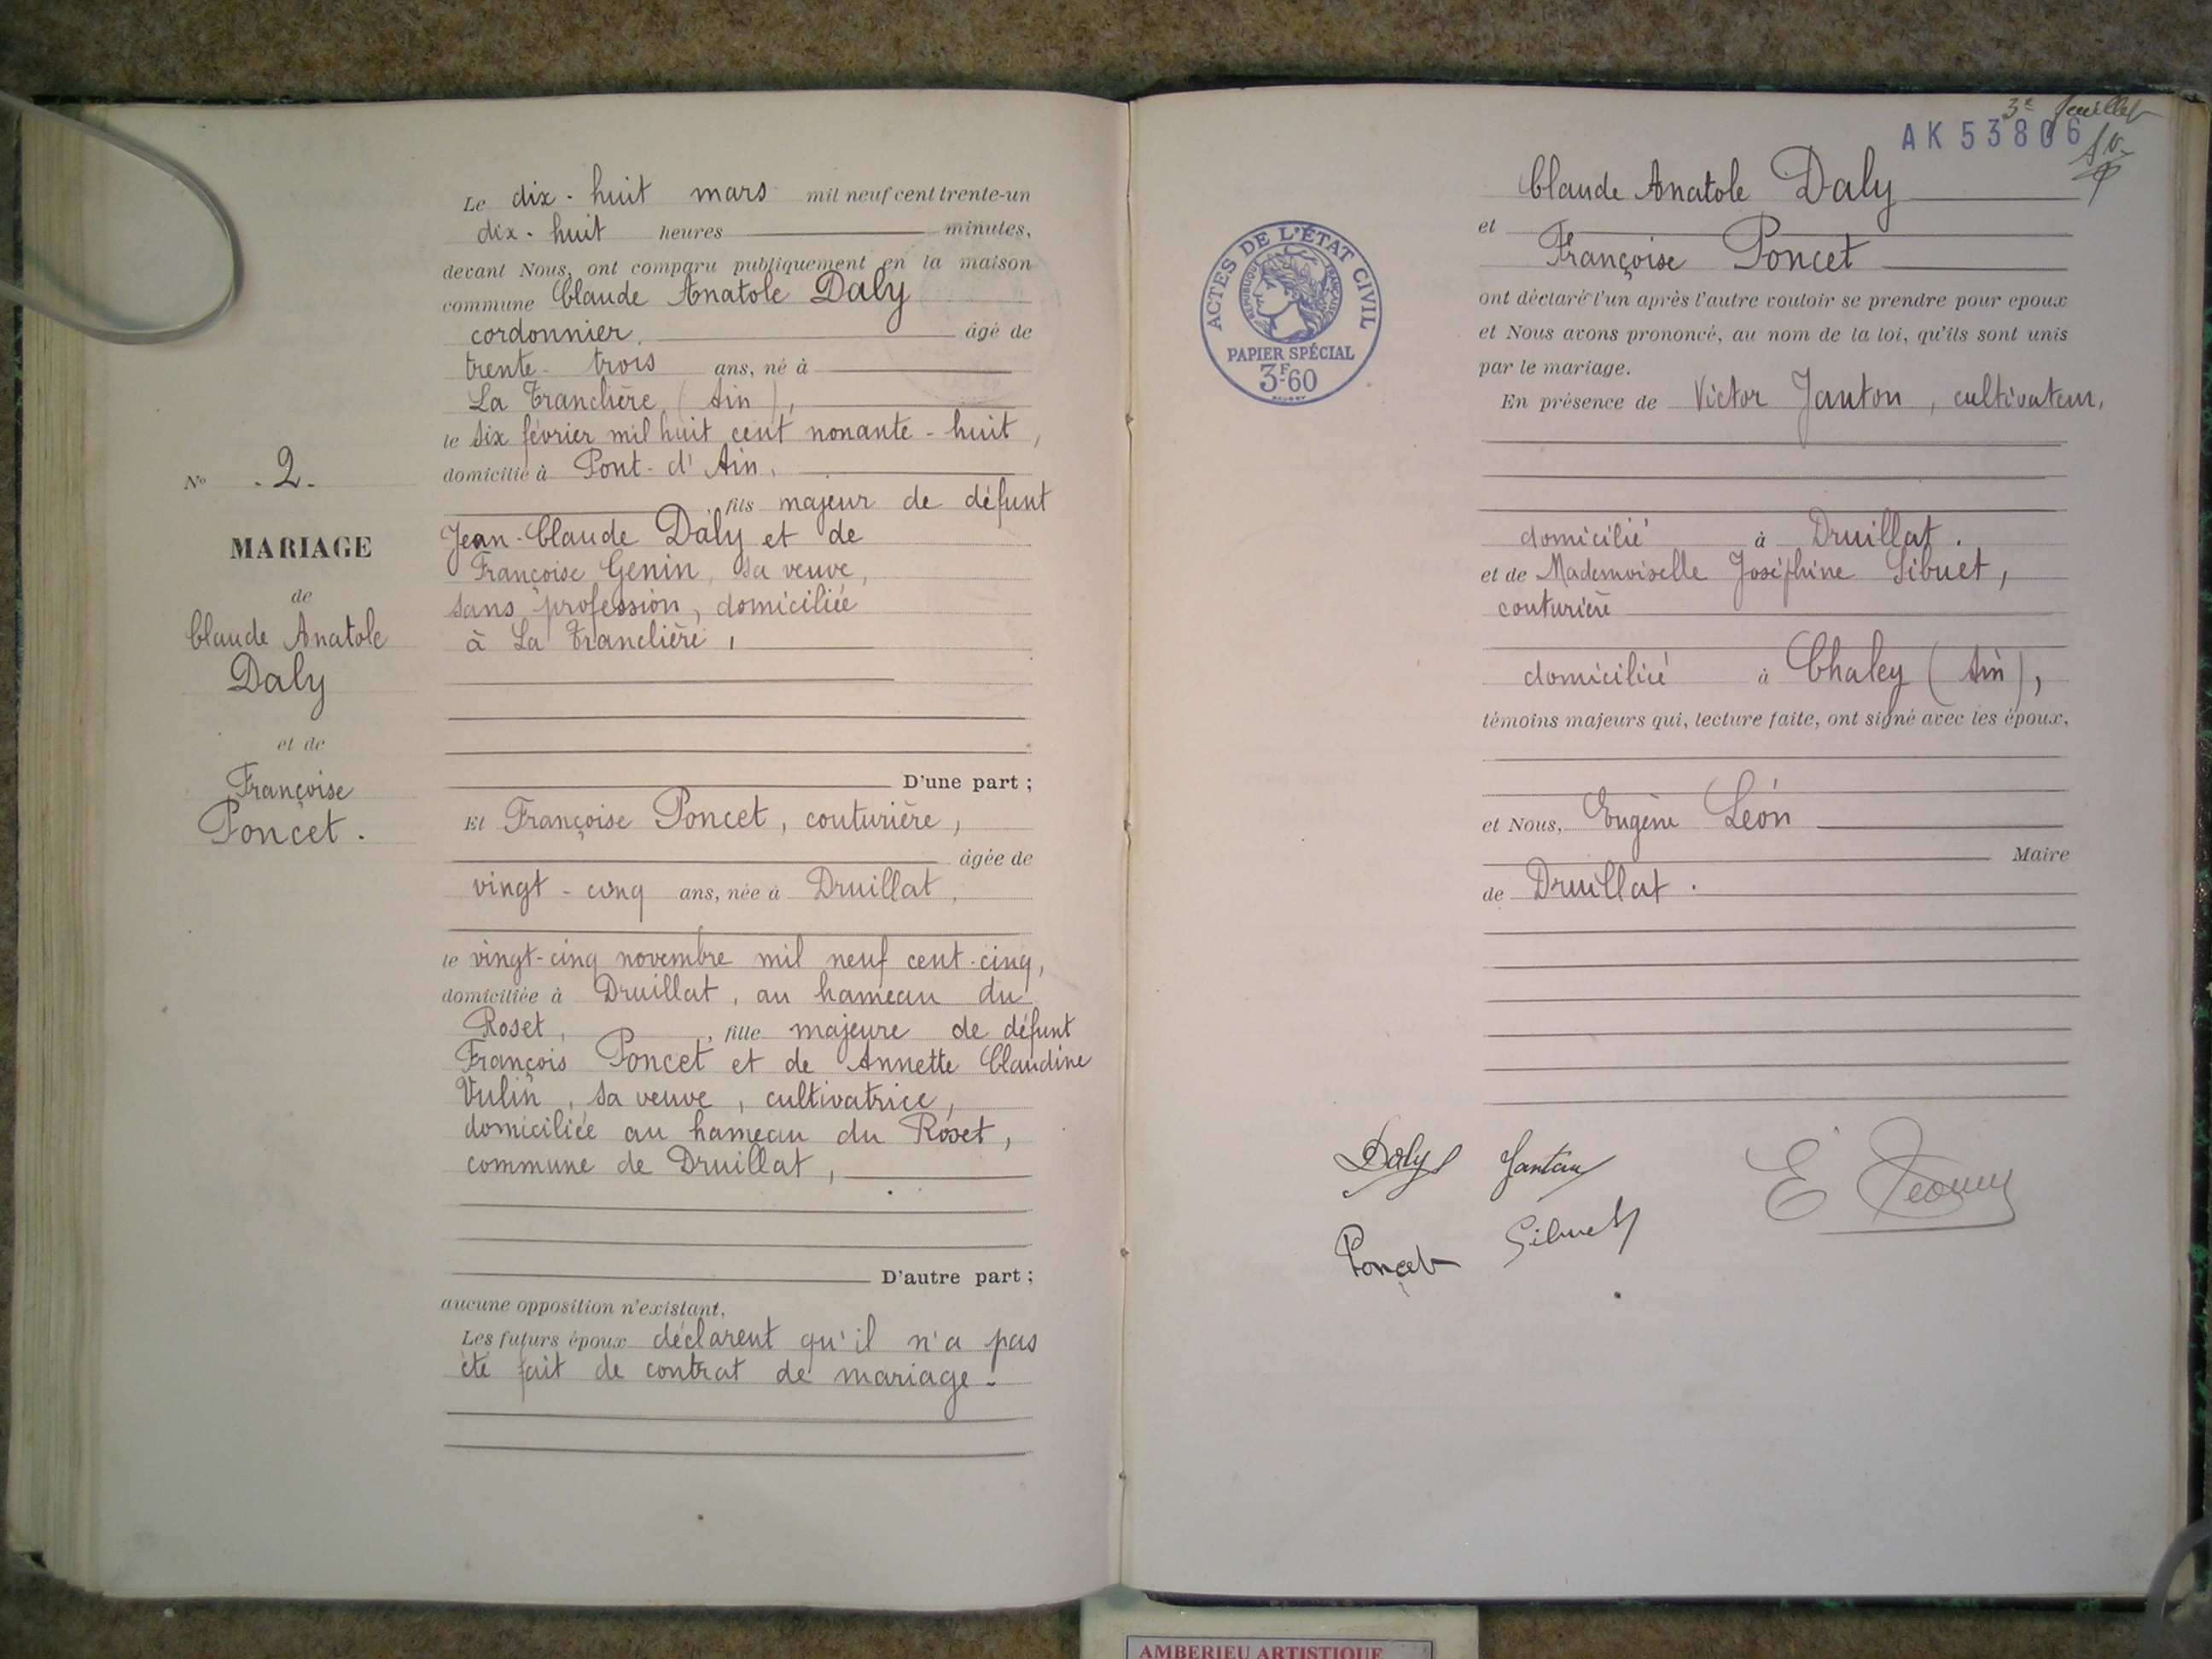 Le dix-huit mars mil neuf cent trente-un
dix-huit heures minutes,
devant Nous, ont comparu publiquement en la maison
commune Claude Anatole Daly
cordonnier, âgé de
trente-trois ans, né à
La Tranclière (Ain),
le six février mil huit cent nonante-huit,
domicilié à Pont-d'Ain,
, fils majeur de défunt
Jean-Claude Daly et de
Françoise Genin, sa veuve,
sans profession, domiciliée
à La Tranclière,
D'une part ;
Et Françoise Poncet, couturière,
âgée de
vingt-cinq ans, née à Druillat,
le vingt-cinq novembre mil neuf cent-cinq,
domiciliée à Druillat, au hameau du
Roset, , fille majeure de défunt
François Poncet et de Annette Claudine
Vulin, sa veuve, cultivatrice,
domiciliée au hameau du Roset,
commune de Druillat,
D'autre part ;
aucune opposition n'existant,
Les futurs époux déclarent qu'il n'a pas
été fait de contrat de mariage.
N° .2.
MARIAGE
de
Claude Anatole
Daly
et de
Françoise
Poncet.
3e feuillet
AK 53806
ACTES DE L'ÉTAT CIVIL
RÉPUBLIQUE FRANÇAISE
PAPIER SPÉCIAL
3F60
Claude Anatole Daly
et
Françoise Poncet
ont déclaré l'un après l'autre vouloir se prendre pour époux
et Nous avons prononcé, au nom de la loi, qu'ils sont unis
par le mariage.
En présence de Victor Janton, cultivateur,
domicilié à Druillat.
et de Mademoiselle Joséphine Sibuet,
couturière
domicilié à Chaley (Ain),
témoins majeurs qui, lecture faite, ont signé avec les époux,
et Nous, Eugène Léon
Maire
de Druillat.
Daly Janton
Poncet Sibuet
AMBERIEU ARTISTIQUE